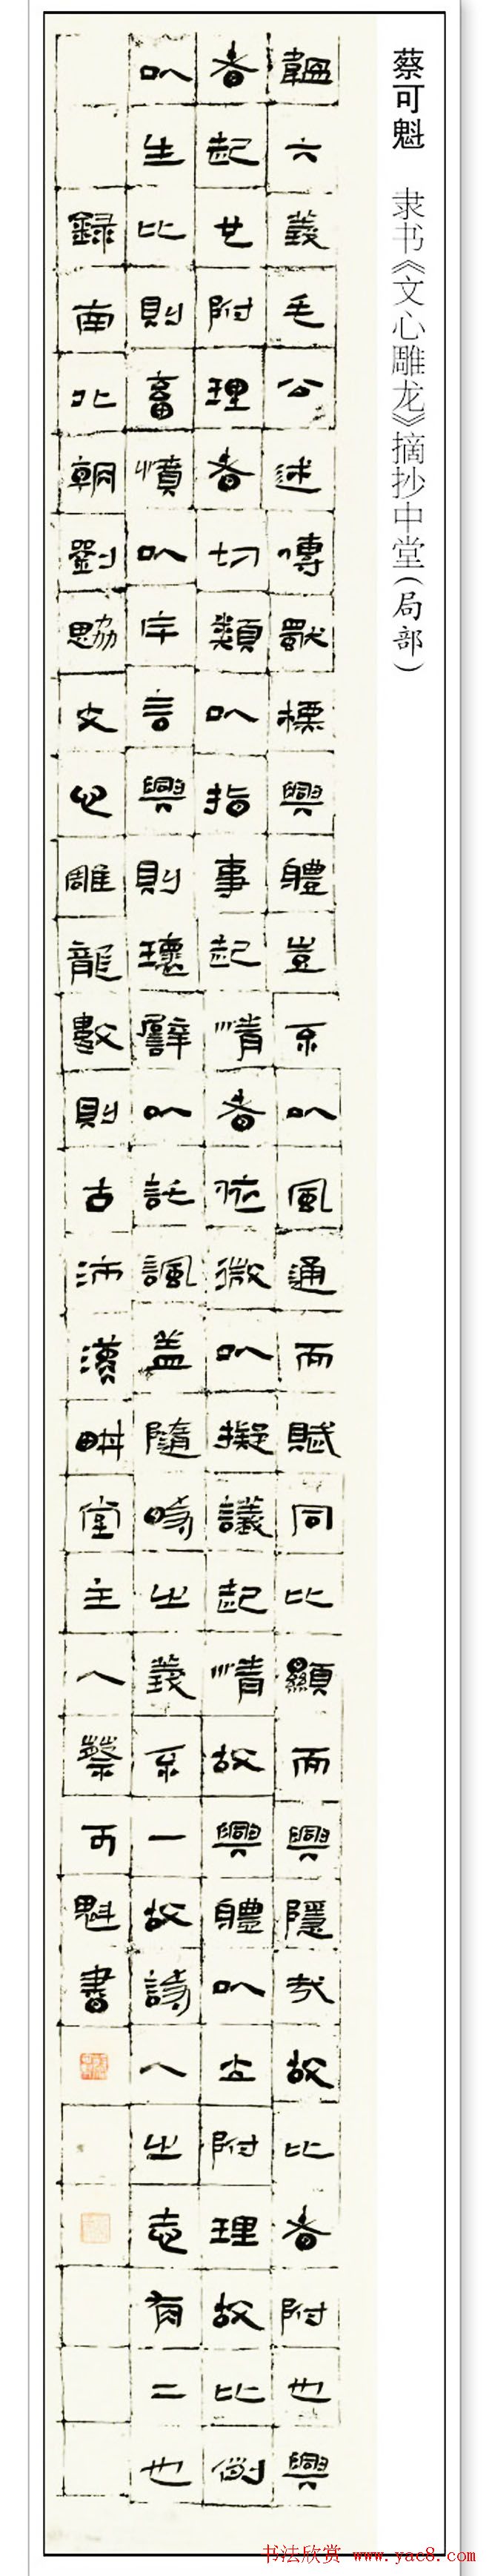 蔡可魁 隶书《文心雕龙》摘抄中堂(局部)
韞六義毛公述傳獨標興體豈不以風通而賦同比顯而興隱哉故比者附也興
者起也附理者切類以指事起情者依微以擬議起情故興體以立附理故比例
以生比則畜憤以斥言興則環譬以託諷盖隨時之義不一故詩人之志有二也
録南北朝劉勰文心雕龍數則古沛漢畊堂主人蔡可魁書
书法欣赏 www.yac8.com